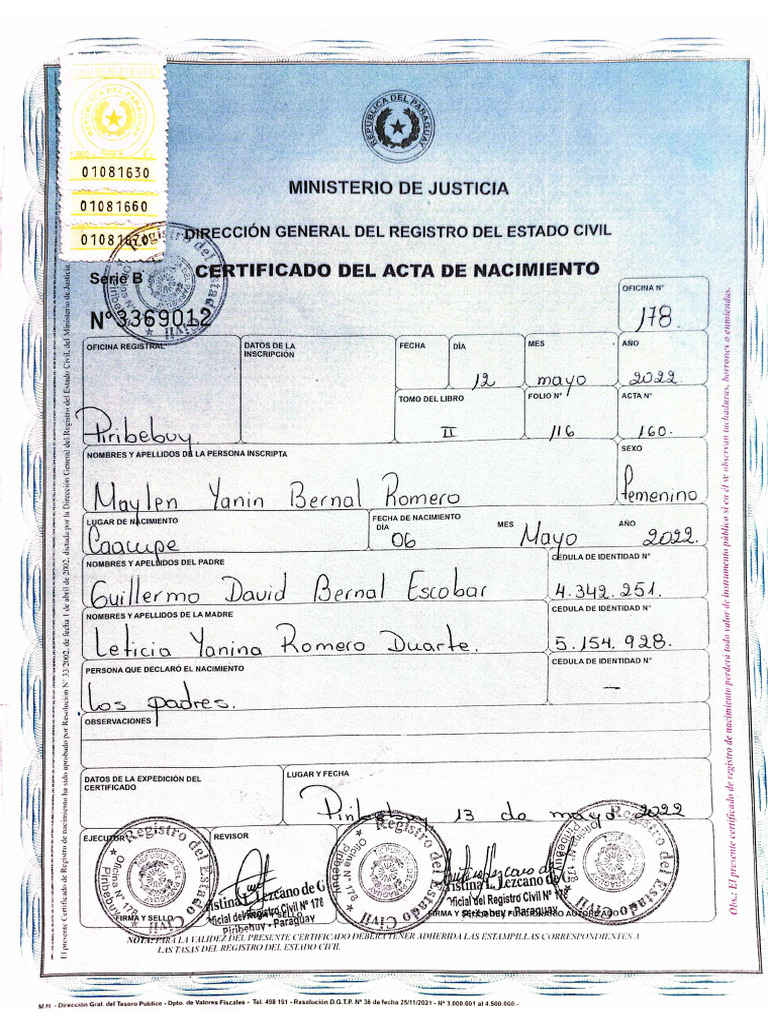 REPUBLICA DEL PARAGUAY
01081630
01081660
01081670
MINISTERIO DE JUSTICIA
DIRECCIÓN GENERAL DEL REGISTRO DEL ESTADO CIVIL
CERTIFICADO DEL ACTA DE NACIMIENTO
Serie B
Nº 3369012
OFICINA N°
178.
OFICINA REGISTRAL
Piribebuy.
DATOS DE LA INSCRIPCIÓN
FECHA
DÍA
12
MES
mayo
AÑO
2022
TOMO DEL LIBRO
II
FOLIO N°
116
ACTA N°
160.
NOMBRES Y APELLIDOS DE LA PERSONA INSCRIPTA
Maylen Yanin Bernal Romero
SEXO
femenino
LUGAR DE NACIMIENTO
Caacupe
FECHA DE NACIMIENTO
DÍA
06
MES
Mayo
AÑO
2022.
NOMBRES Y APELLIDOS DEL PADRE
Guillermo David Bernal Escobar
CÉDULA DE IDENTIDAD N°
4.342.251.
NOMBRES Y APELLIDOS DE LA MADRE
Leticia Yanina Romero Duarte.
CÉDULA DE IDENTIDAD N°
5.154.928.
PERSONA QUE DECLARÓ EL NACIMIENTO
Los padres.
CÉDULA DE IDENTIDAD N°
—
OBSERVACIONES
DATOS DE LA EXPEDICIÓN DEL CERTIFICADO
LUGAR Y FECHA
Piribebuy 13 de mayo 2022
EJECUTOR
REVISOR
FIRMA Y SELLO
Registro del Estado Civil
Oficina N° 178
Piribebuy
Lezcano de G
Oficial del Registro Civil N° 178
Piribebuy - Paraguay
Registro del Estado Civil
Oficina N° 178
Piribebuy
Cristina L. Lezcano de
Oficial del Registro Civil N° 178
Piribebuy - Paraguay
NOTA: PARA LA VALIDEZ DEL PRESENTE CERTIFICADO DEBERA TENER ADHERIDA LAS ESTAMPILLAS CORRESPONDIENTES A
LAS TASAS DEL REGISTRO DEL ESTADO CIVIL
M.H. - Dirección Gral. del Tesoro Público - Dpto. de Valores Fiscales - Tel. 498 191 - Resolución D.G.T.P. N° 38 de fecha 25/11/2021 - N° 3.000.001 al 4.500.000.-
El presente Certificado de Registro de nacimiento ha sido aprobado por Resolución N° 33/2002, de fecha 1 de abril de 2002, dictada por la Dirección General del Registro del Estado Civil, del Ministerio de Justicia
Obs.: El presente certificado de registro de nacimiento perderá todo valor de instrumento público si en él se observan tachaduras, borrones o enmiendas.